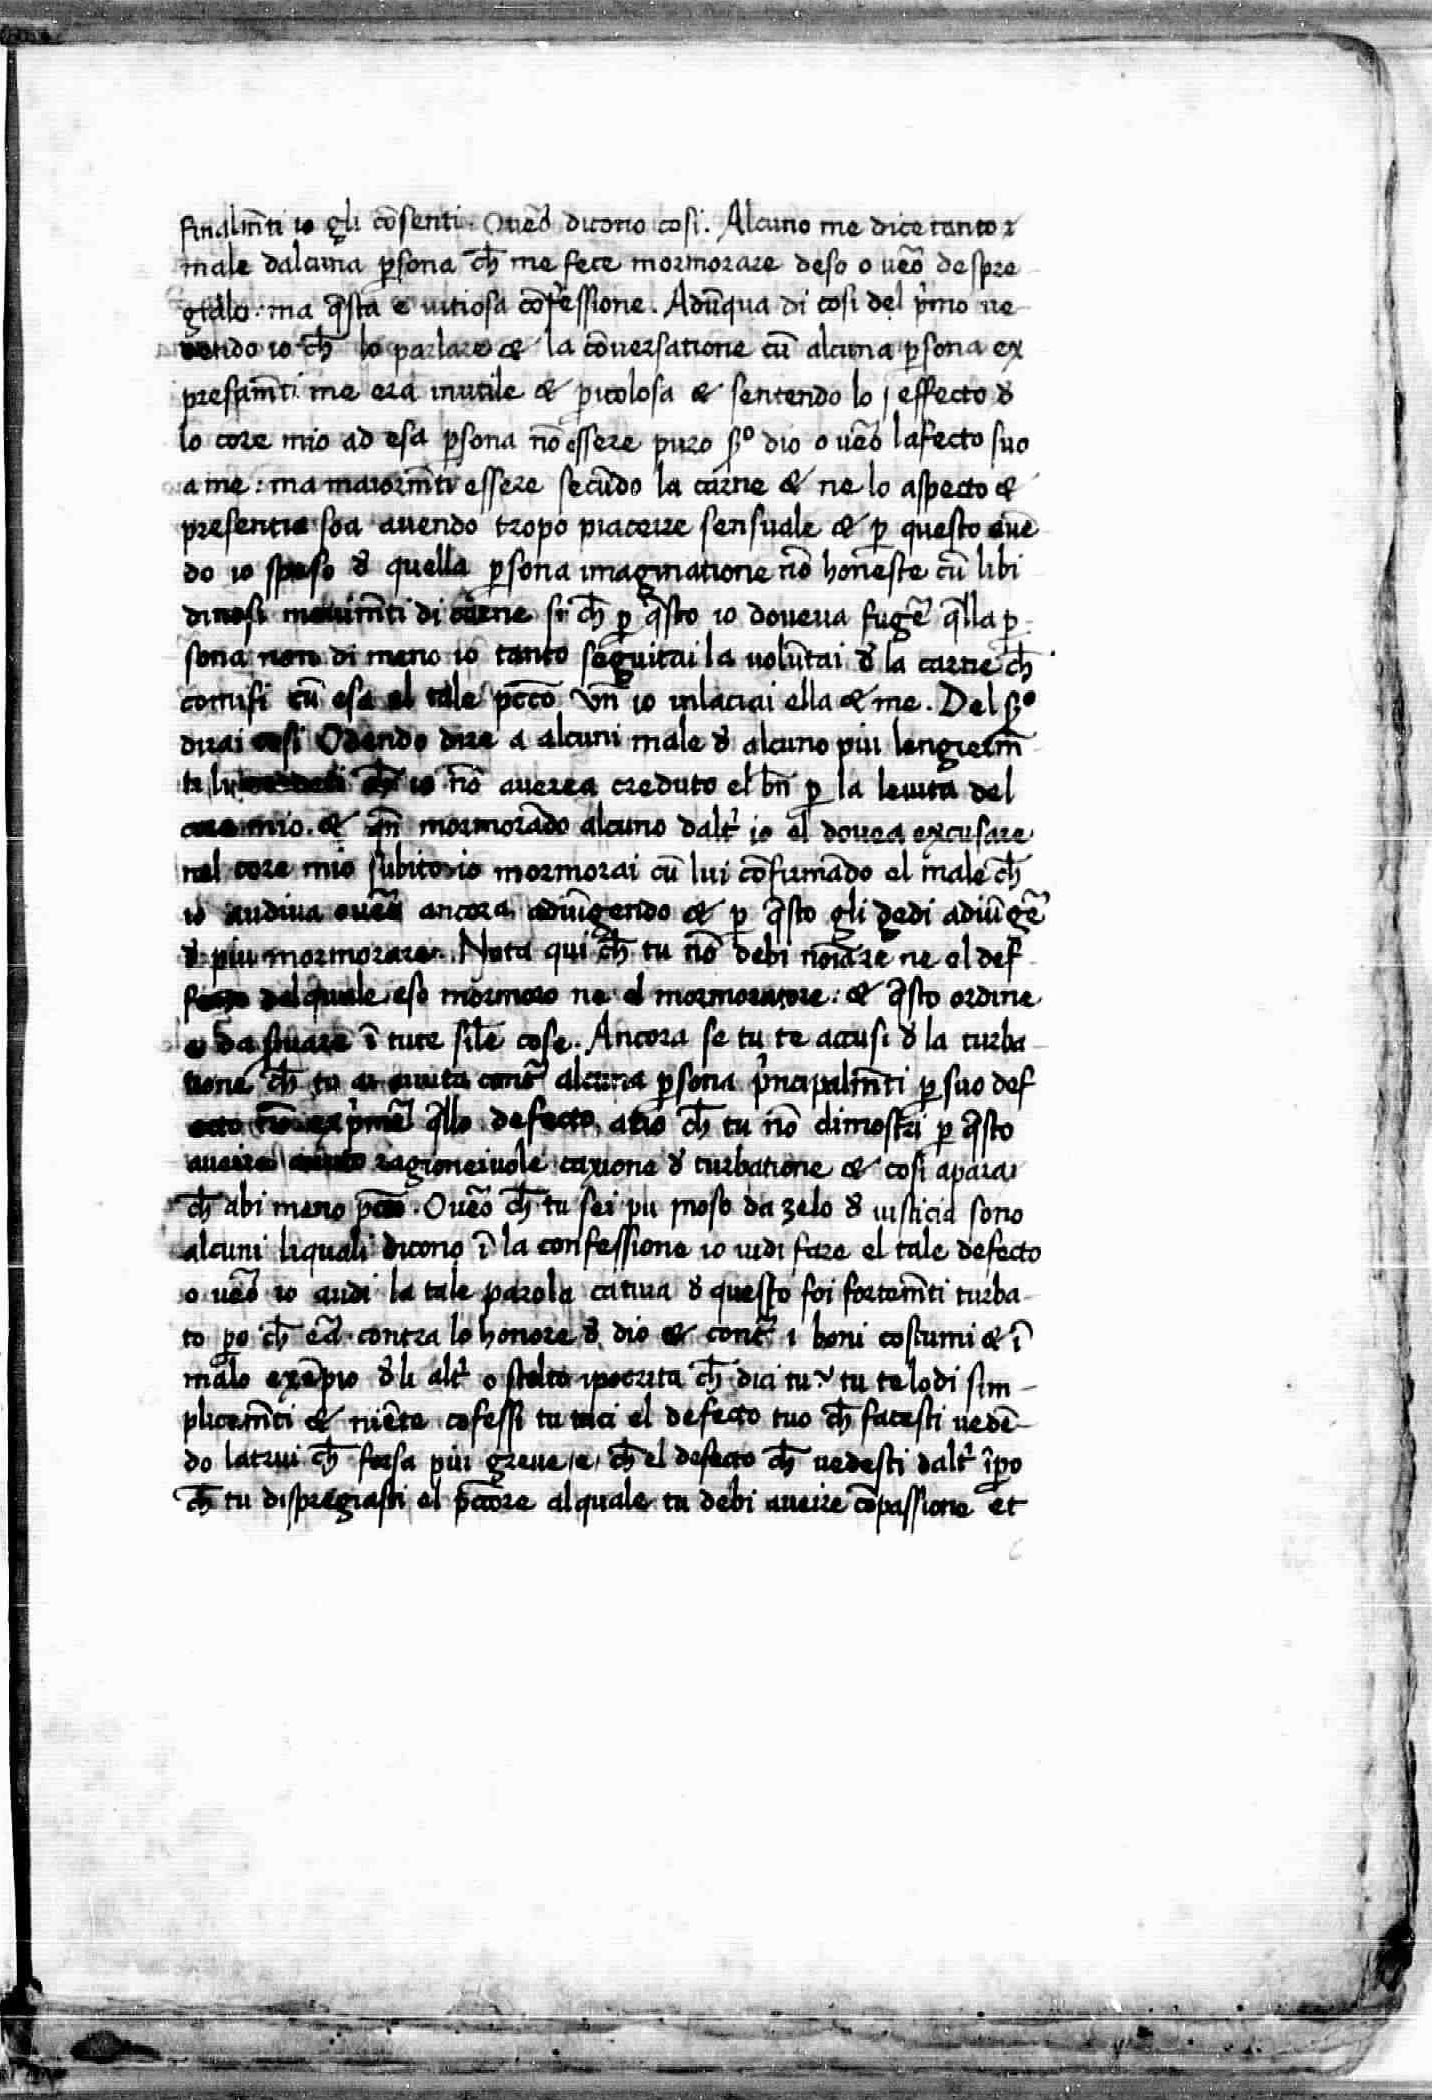 finalmēti io gli cōsenti. Oueō dicono cosi. Alcuno me dice tanto
male dalcuna ꝑsona ch̄ me fece mormorare deso o ueō despre
gialo: ma q̄sta e uitiosa cōfessione. Adūqua di cosi del pͥmo ue
dendo io ch̄ lo parlare & la cōuersatione cū alcuna ꝑsona ex
presam̄ti me era inutile & ꝑicolosa & sentendo lo effecto d̄
lo core mio ad esa ꝑsona nō essere puro s̄º dio o ueō lafecto suo
a me: ma maiorm̄ti essere secūdo la carne & ne lo aspecto &
presentia soa auendo tropo piacerre sensuale & ꝑ questo auē
do io speso d̄ quella ꝑsona imaginatione nō honeste cū libi
dinosi mouim̄ti di carne si ch̄ ꝑ q̄sto io doueua fugē q̄lla ꝑ
sona non di meno io tanto seguitai la volūtai d̄ la carne ch̄
comisi cū esa el tale pc̄c̄o vn̄ io inlaciai ella & me. Del s̄º
dirai cosi Odendo dire a alcuni male d̄ alcuno piu lengierm̄
ti ch̄ io nō auerea creduto el bn̄ ꝑ la leuita del
core mio. & qn̄ mormorādo alcuno daltͥ io el douea excusare
nel core mio subito io mormorai cū lui cōfirmādo el male ch̄
io audiua oueō ancora adiūgendo & ꝑ q̄sto gli dedi adiūgē
d̄ piu mormorare. Nota qui ch̄ tu nō debi noīare ne el def
fecto del quale eso mormoro ne el mormoratore: & q̄sto ordine
e da ꝑuare ī tute sile cose. Ancora se tu te accusi d̄ la turba
tione ch̄ tu ai auuta contͣ alcuna ꝑsona pͥncipalm̄ti ꝑ suo def
ecto nō expͥmē q̄llo defecto, atio ch̄ tu nō dimostri ꝑ q̄sto
aueire auuto ragioneiuole caxione d̄ turbatione & cosi aparai
ch̄ abi meno pc̄c̄o. Oueō ch̄ tu sei piu moso da zelo d̄ iusticia sono
alcuni liquali dicono ī la confessione io uidi fare el tale defecto
o ueō io audi la tale parola catiua d̄ questo foi fortem̄ti turba
to ꝑo ch̄ eā contra lo honore d̄ dio & contͣ i boni costumi & ī
malo exēpio d̄ li altͥ o stolto ipocrita ch̄ dici tu? tu te lodi sim
plicem̄ti & niēte cōfessi tu taci el defecto tuo ch̄ facesti uedē
do latrui ch̄ forsa piu greue e, ch̄ el defecto ch̄ vedesti daltͥ īꝑo
ch̄ tu dispregiasti el pc̄c̄ore alquale tu debi aueire cōpassione et